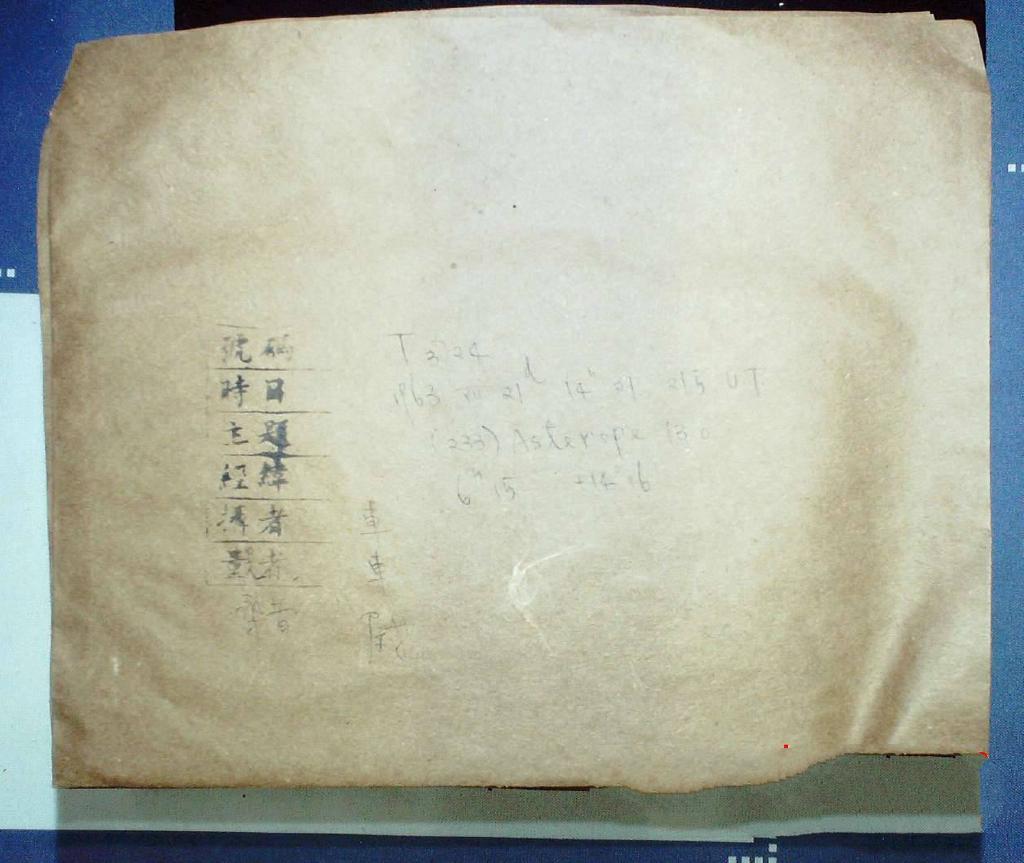 號碼 T 2724
時日 1963 VII 21d 14h 21 215 UT
主題 (233) Asterope 13.0
經緯 6h 15 +14° 16
攝者 車
量者 車